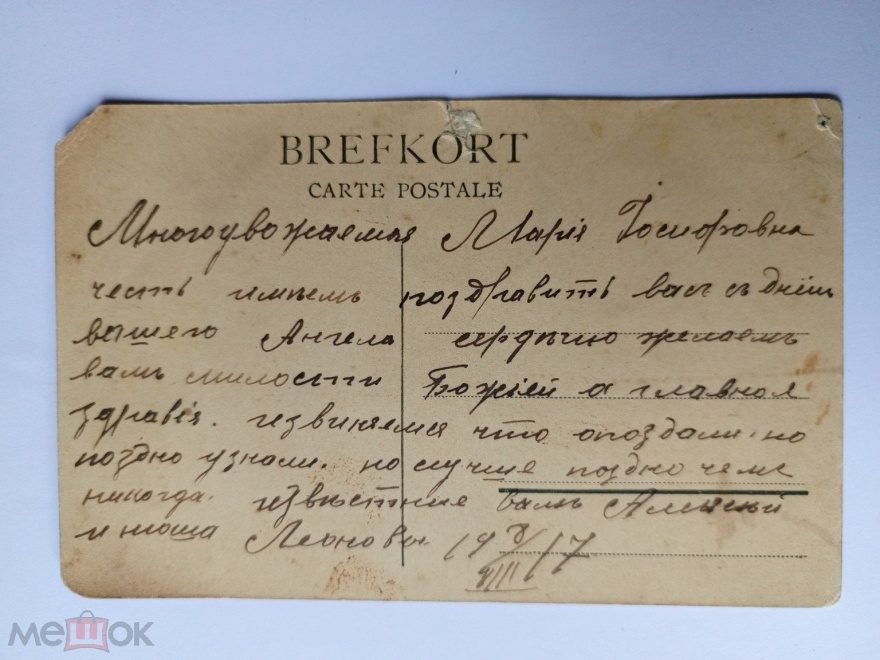 BREFKORT
CARTE POSTALE
Многоуважаемая Марiя Iосифовна
честь имѣемъ поздравить васъ съ днём
вашего Ангела сердечно желаемъ
вамъ милости Божiей а главное
здравiя. извиняемся что опоздали. но
поздно узнали. но лучше поздно чем
никогда. извѣстные вамъ Алексѣй
и нюша Леоновы 19 VIII 17
мешок